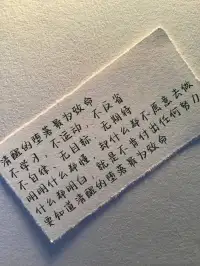 清醒的堕落最为致命
不学习，不运动，不反省
不自律、无目标、无期待
明明什么都懂，却什么都不愿意去做
什么都明白，就是不肯付出任何努力
要知道清醒的堕落最为致命